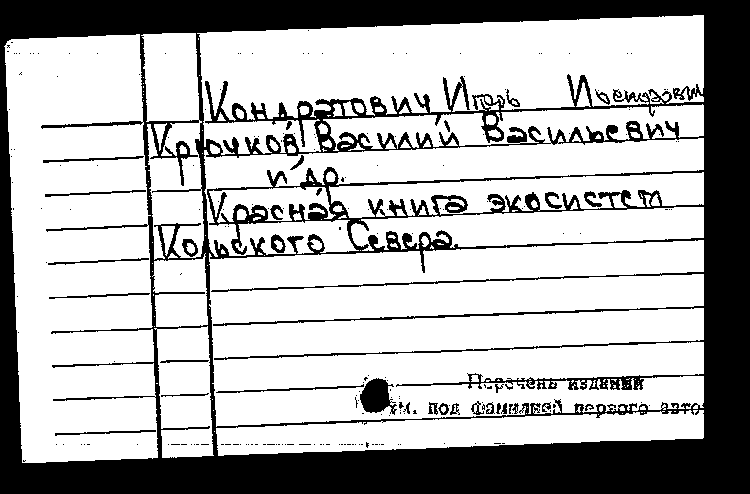 Кондратович, Игорь Иосифович
Крючков, Василий Васильевич
и др.
Красная книга экосистем
Кольского Севера.
Перечень издания
см. под фамилией первого авто